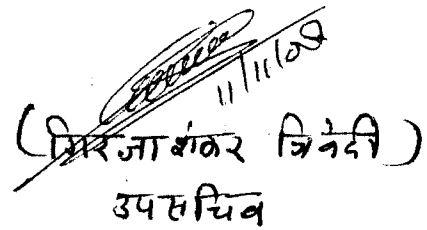 11/11/08
(गिरजा शंकर त्रिवेदी)
उपसचिव